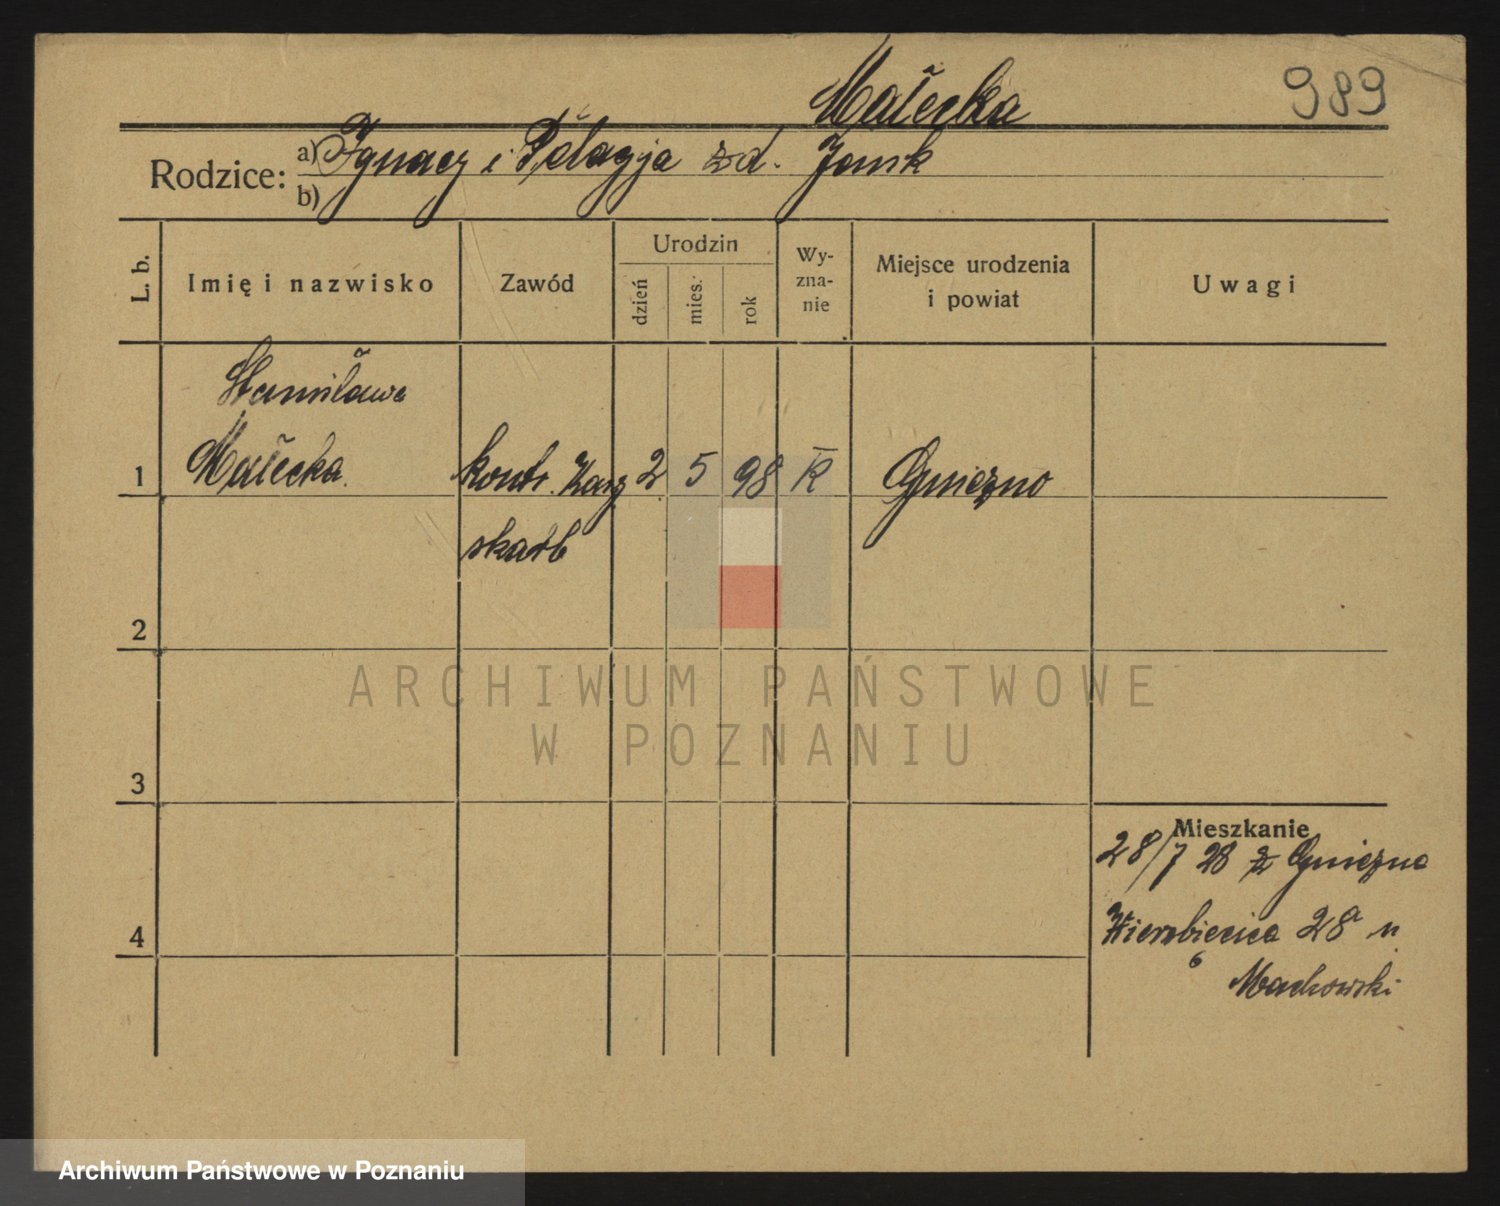 Małecka
989
Rodzice:
a) Ignacy i Pelagja zd. Janik
b)
L. b.
Imię i nazwisko
Zawód
Urodzin
dzień
mies.
rok
Wy-
zna-
nie
Miejsce urodzenia
i powiat
Uwagi
Stanisława
1 Małecka. kontr. 2 5 98 K Gniezno
skarb
2
3
4
Mieszkanie
28/7 28 z Gniezna
Wierzbięcice 28a u
6
Machowski
ARCHIWUM PAŃSTWOWE
W POZNANIU
Archiwum Państwowe w Poznaniu